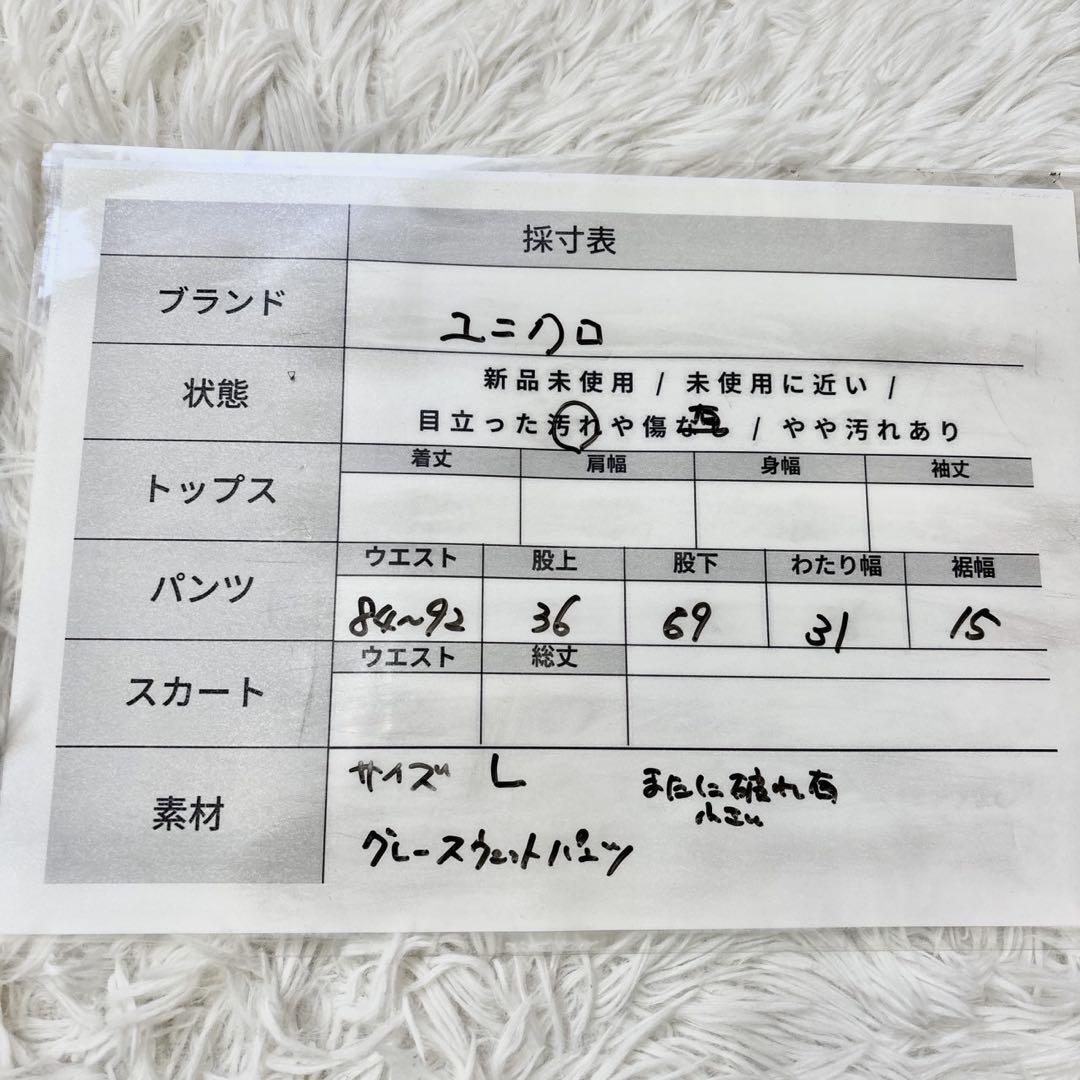 採寸表
ブランド ユニクロ
状態 新品未使用 / 未使用に近い /
目立った汚れや傷な有 / やや汚れあり
トップス 着丈 肩幅 身幅 袖丈
パンツ ウエスト 股上 股下 わたり幅 裾幅
84~92 36 69 31 15
スカート ウエスト 総丈
素材 サイズ L またに破れ有
小さい
グレースウェットパンツ